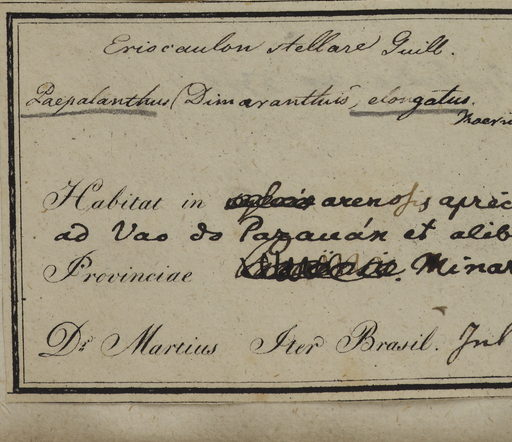 Eriocaulon stellare Guill.
Paepalanthus (Dimaranthus), elongatus.
Koern
Habitat in arenosis apric
ad Vao do Parauán et alib
Provinciae Minar
Dr. Martius Iter Brasil. Jul